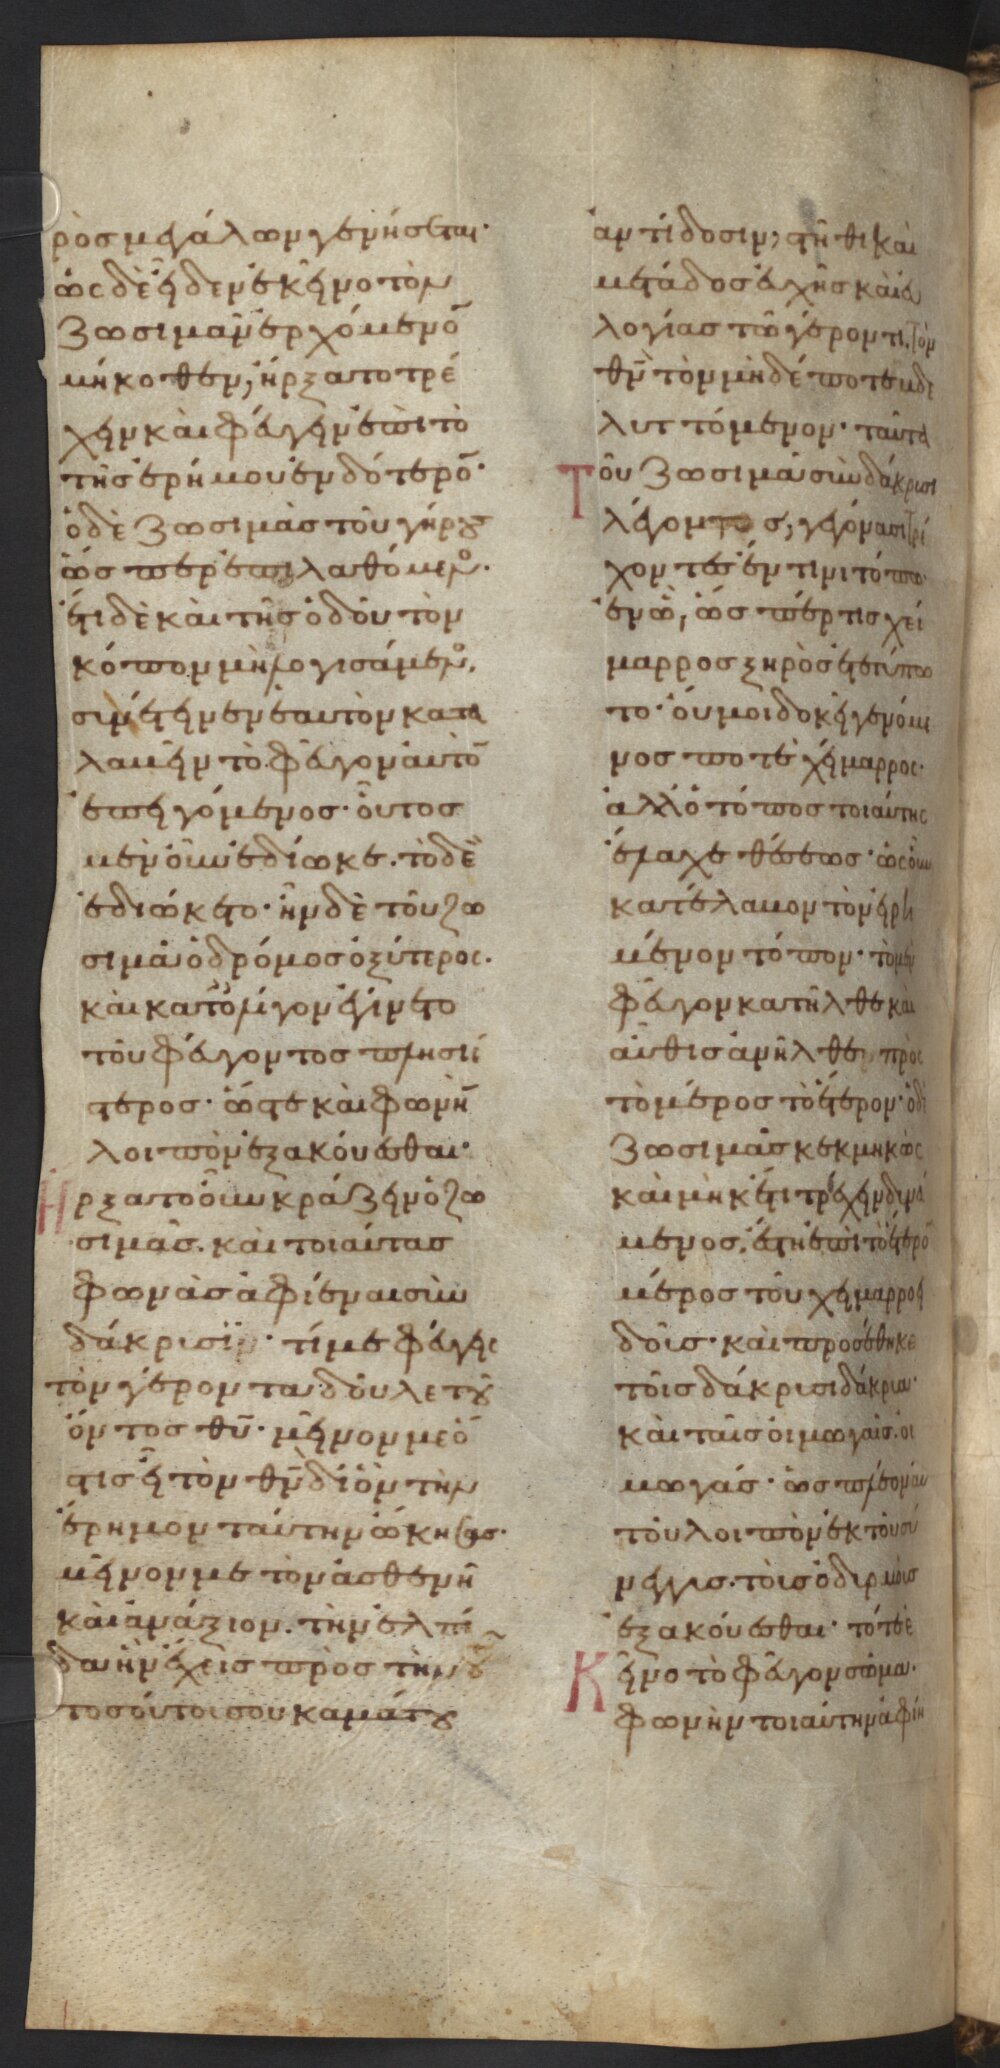 ρὸς μεγάλων γενήσεται·
ὡς δὲ εἶδεν ἐκεῖνο τὸν
Ζωσιμᾶν ἐρχόμενο̅
μήκοθεν, ἤρξατο τρέ
χειν καὶ φεύγειν ἐπὶ τὸ
τῆς ἐρήμου ἐνδότερο̅·
ὁ δὲ Ζωσιμὰς τοῦ γήρους
ὥσπερ ἐπιλαθόμενο̅ς·
ἔτι δὲ καὶ τῆς ὁδοῦ τὸν
κόπον μὴ λογισάμενος,
συνέτεινεν ἑαυτὸν κατα
λαβεῖν τὸ φεῦγον αὐτὸ̅
ἐπειγόμενος· οὗτος
μὲν οὖν ἐδίωκε· τὸ δὲ
ἐδιώκετο· ἦν δὲ τοῦ Ζω
σιμᾶ ὁ δρόμος ὀξύτερος·
καὶ κατ' ὀλίγον ἐγίνετο
τοῦ φεύγοντος πλησιέ
στερος· ὥστε καὶ φωνὴ̅
λοιπὸν ἐξακούεσθαι·
Ηρξατο οὖν κράζειν ὁ Ζω
σιμᾶς· καὶ τοιαύτας
φωνὰς ἀφιέναι σὺν
δάκρισιν· τί με φεύγεις
τὸν γέροντα δοῦλε τοῦ
ὄντος θυ̅· μεῖνόν με ὅ̅
τις εἶ τὸν θν̅ δι' ὃν τὴν
ἔρημον ταύτην ᾤκησας·
μεῖνόν με τὸν ἀσθενῆ
καὶ ἀνάξιον· τὴν ἐλπί
δα ἣν ἔχεις πρὸς τὴν τοῦ
τοσούτοι σου καμάτου
ἀντίδοσιν, στῆθι καὶ
μετάδος εὐχῆς καὶ εὐ
λογίας τῶ γέροντι, τὸν
θν̅ τὸν μηδέποτε βδε
λυττόμενον· ταῦτα
Τοῦ Ζωσιμᾶ σὺν δάκρυσι
λέγοντος, γεγόνασι τρέ
χοντες ἔν τινι τόπω·
ἐν ᾧ, ὥσπερ τις χεί
μαρρος ξηρὸς ἐτετύπω
το· οὔ μοι δοκεῖ γενόμε
νος ποτὲ χείμαρρος·
ἀλλ' ὁ τόπος τοιαύτης
ἔλαχε θέσεως· ὡς οὖν
κατέλαβον τὸν εἰρη
μένον τόπον· τὸ μὲν
φεῦγον κατῆλθε καὶ
αὖθις ἀνῆλθε πρὸς
τὸ μέρος τὸ ἕτερον· ὁ δὲ
Ζωσιμᾶς κεκμηκὼς
καὶ μηκέτι τρέχειν δυνά
μενος, ἔστη ἐπὶ τὸ ἕτερο̅
μέρος τοῦ χειμαρροει
δοῦς· καὶ προσέθηκε
τοῖς δάκρισι δάκρια·
καὶ ταῖς οἰμωγαῖς· οἰ
μωγάς· ὡς πλέον ἀυ
τοῦ λοιπὸν ἐκ τοῦ σύ
νεγγις· τοῖς ὀδιρμοῖς
ἐξακούεσθαι· τότε ἐ
Κεῖνο τὸ φεῦγον σῶμα·
φωνὴν τοιαύτην ἀφίη